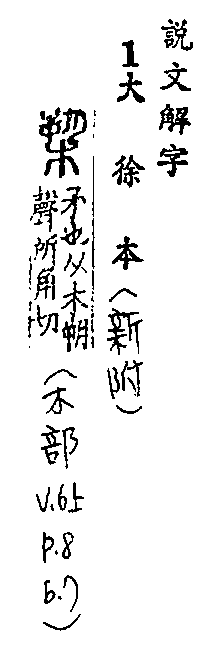 說文解字
1大徐本(新附)
槊
矛也从木朔
聲所角切
(木部
v.6上
p.8
b.7)